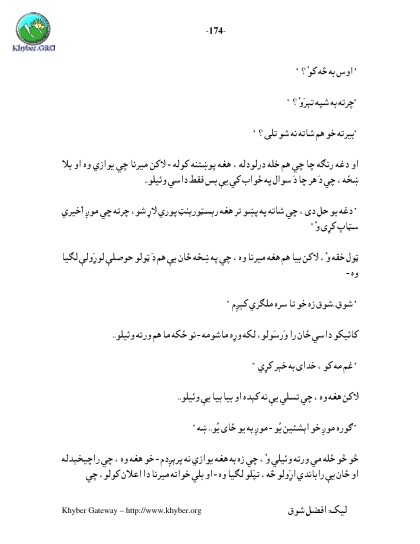 Khyber.ORG
-174-
" اوس به څه کوُ ؟ "
"چرته به شپه تېروُ ؟ "
"بېرته خو هم شاته نه شو تلی ؟ "
او دغه رنګه چا چي هم خله درلودله ، هغه پوښتنه کوله - لاکن میرنا چي یوازي وه او بلا
ښځه ، چي دَ هر چا دَ سوال په ځواب کي یې بس فقط داسي وئیلو..
" دغه یو حل دی ، چي شاته په پښو تر هغه رېسټورېنټ پوري لاړ شو ، چرته چي موږ اخیري
سټاپ کړی وُ "
ټول خفه وُ ، لاکن بیا هم هغه میرنا وه ، چي په ښځه ځان یې هم دَ ټولو حوصلې لوړولې لګیا
وه -
" شوق..شوق زه خو تا سره ملګري کېږم "
کاڼیکو داسي ځان را وَرسَولو ، لکه وړه ماشومه - نو ځکه ما هم ورته وئیلو..
" غم مه کو ، خدای به خبر کړي "
لاکن هغه وه ، چي تسلي یې نه کېده او بیا بیا یې وئیلو..
" ګوره موږ خو اېشئین یُو - موږ به یو ځای یُو.. ښه "
څو څو ځله مي ورته وئیلي وُ ، چي زه به هغه یوازي نه پرېږدم - خو هغه وه ، چي راچپخېدله
او ځان یې را باندي اړولو څه ، تپلو لګیا وه - او بلي خوا ته میرنا دا اعلان کولو ، چي
Khyber Gateway – http://www.khyber.org
لیک: افضل شوق